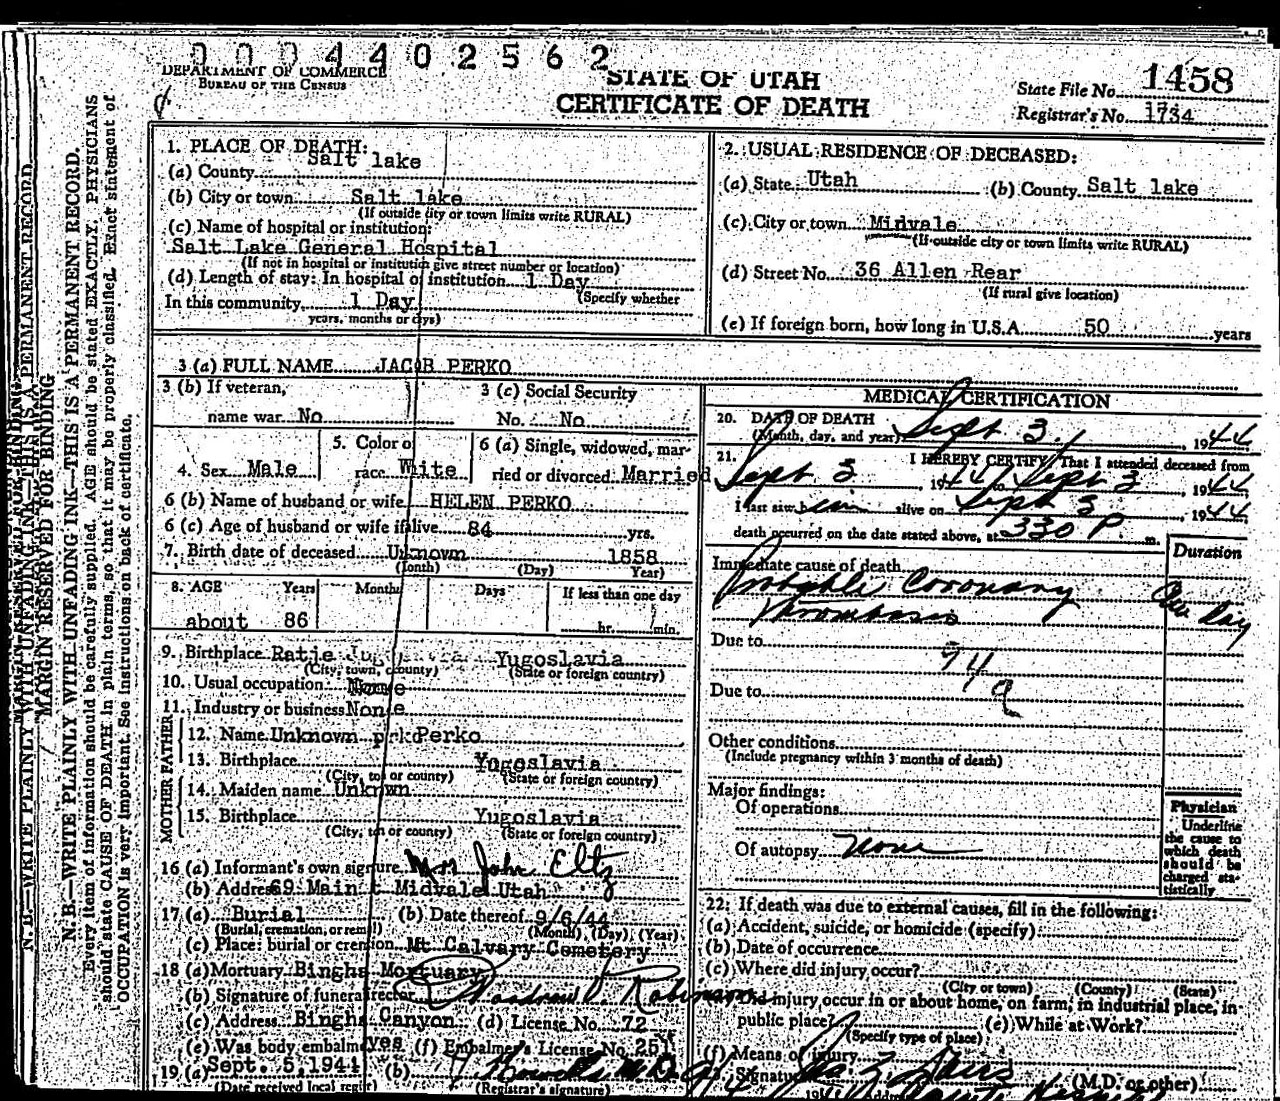 0 0 0 4 4 0 2 5 6 2
DEPARTMENT OF COMMERCE
BUREAU OF THE CENSUS
STATE OF UTAH
CERTIFICATE OF DEATH
State File No. 1458
Registrar's No. 1734
N. B.—WRITE PLAINLY WITH UNFADING INK—THIS IS A PERMANENT RECORD.
MARGIN RESERVED FOR BINDING
Every item of information should be carefully supplied. AGE should be stated EXACTLY. PHYSICIANS
should state CAUSE OF DEATH in plain terms, so that it may be properly classified. Exact statement of
OCCUPATION is very important. See instructions on back of certificate.
1. PLACE OF DEATH:
(a) County Salt lake
(b) City or town Salt lake
(If outside city or town limits write RURAL)
(c) Name of hospital or institution:
Salt Lake General Hospital
(If not in hospital or institution give street number or location)
(d) Length of stay: In hospital or institution 1 Day
(Specify whether
In this community 1 Day
years, months or days)
2. USUAL RESIDENCE OF DECEASED:
(a) State Utah (b) County Salt lake
(c) City or town Midvale
(If outside city or town limits write RURAL)
(d) Street No. 36 Allen Rear
(If rural give location)
(e) If foreign born, how long in U.S.A. 50 years
3 (a) FULL NAME JACOB PERKO
3 (b) If veteran,
name war No
3 (c) Social Security
No. No
4. Sex Male
5. Color o
race White
6 (a) Single, widowed, mar-
ried or divorced Married
6 (b) Name of husband or wife HELEN PERKO
6 (c) Age of husband or wife if alive 84 yrs.
7. Birth date of deceased Unknown 1858
(Month) (Day) Year)
8. AGE Years Months Days If less than one day
about 86 hr. min.
9. Birthplace Ratje Yugoslavia
(City, town, county) (State or foreign country)
10. Usual occupation None
11. Industry or business None
FATHER
12. Name Unknown Perko
13. Birthplace Yugoslavia
(City, ton or county) (State or foreign country)
MOTHER
14. Maiden name Unknwn
15. Birthplace Yugoslavia
(City, tn or county) (State or foreign country)
16 (a) Informant's own signature Mrs John Eltz
(b) Address 69 Main t Midvale Utah
17 (a) Burial (b) Date thereof 9/6/44
(Burial, cremation, or removal) (Month) (Day) (Year)
(c) Place: burial or cremation Mt Calvary Cemetery
18 (a) Mortuary Bingha Mortuary
(b) Signature of funeral director Woodrow Robinson
(c) Address Bingha Canyon (d) License No. 72
(e) Was body embalmed yes (f) Embalmer's License No. 251
19 (a) Sept. 5, 1944 (b)
(Date received local registr) (Registrar's signature)
MEDICAL CERTIFICATION
20. DATE OF DEATH
(Month, day, and year) Sept 3, 1944
21. I HEREBY CERTIFY, That I attended deceased from
Sept 3, 1944 to Sept 3, 1944
I last saw him alive on Sept 3, 1944
death occurred on the date stated above, at 330 P. m.
Duration
Immediate cause of death
Probable Coronary One Day
Thrombosis
Due to 94 a
Due to
Other conditions
(Include pregnancy within 3 months of death)
Major findings:
Of operations
Of autopsy None
Physician
Underline
the cause to
which death
should be
charged sta-
tistically
22. If death was due to external causes, fill in the following:
(a) Accident, suicide, or homicide (specify):
(b) Date of occurrence
(c) Where did injury occur?
(City or town) (County) (State)
Did injury occur in or about home, on farm, in industrial place, in
public place? (e) While at Work?
(Specify type of place)
(f) Means of injury
Signature (M.D. or other)